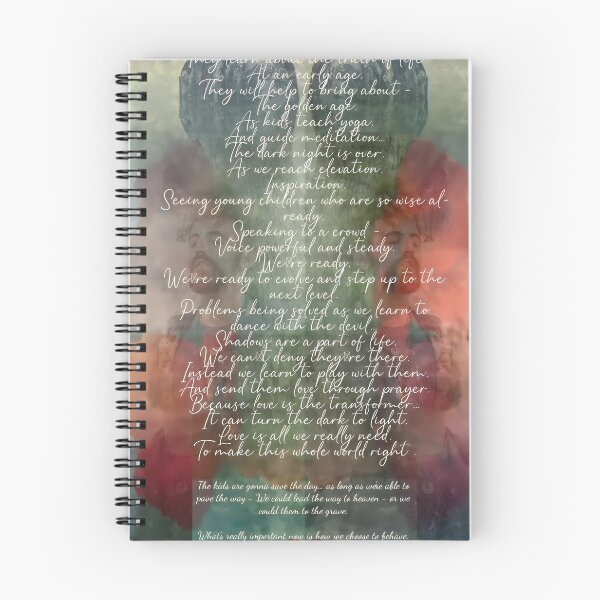 They learn about the truth of life
At an early age.
They will help to bring about -
The golden age.
As kids teach yoga.
And guide meditation...
The dark night is over.
As we reach elevation.
Inspiration.
Seeing young children who are so wise al-
ready.
Speaking to a crowd -
Voice powerful and steady.
We're ready.
We're ready to evolve and step up to the
next level.
Problems being solved as we learn to
dance with the devil.
Shadows are a part of life.
We can't deny they're there.
Instead we learn to play with them.
And send them love through prayer.
Because love is the transformer...
It can turn the dark to light.
Love is all we really need.
To make this whole world right .
The kids are gonna save the day... as long as were able to
pave the way - We could lead the way to heaven - or we
could them to the grave.
Whats really important now is how we choose to behave.